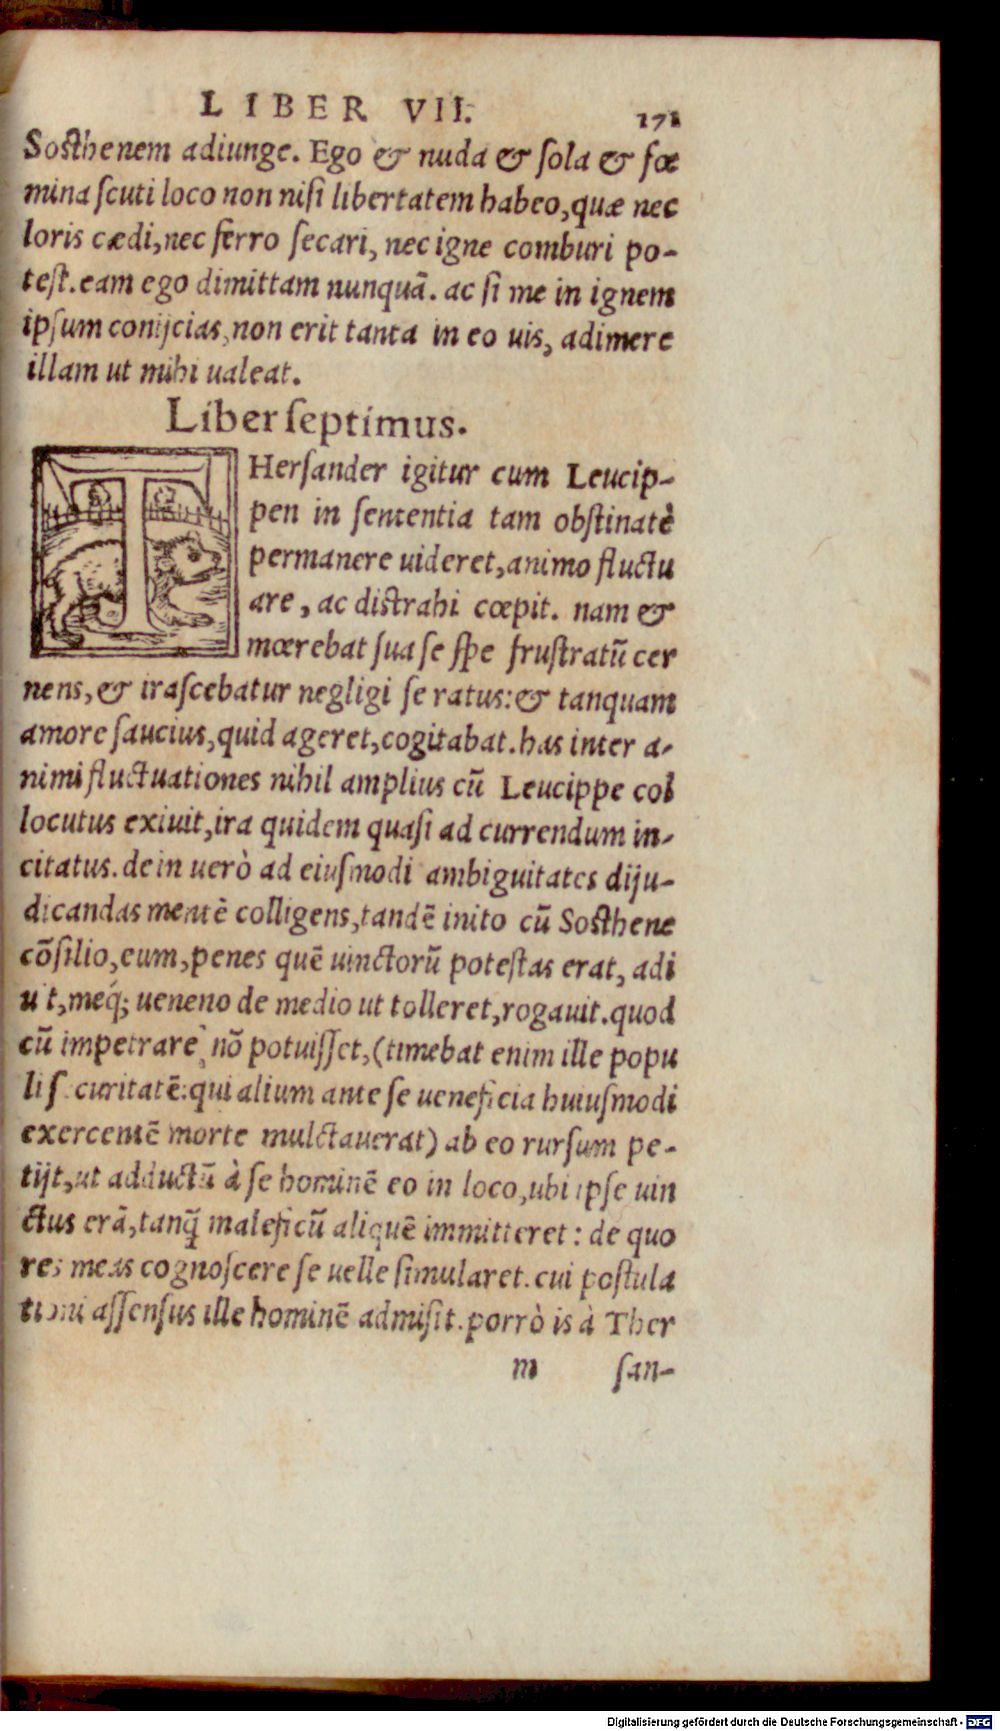 LIBER VII. 171
Sosthenem adiunge. Ego & nuda & sola & fœ
mina scuti loco non nisi libertatem habeo, quæ nec
loris cædi, nec ferro secari, nec igne comburi po-
test. eam ego dimittam nunquã. ac si me in ignem
ipsum conijcias, non erit tanta in eo uis, adimere
illam ut mihi ualeat.
Liber septimus.
THersander igitur cum Leucip-
pen in sententia tam obstinatè
permanere uideret, animo fluctu
are, ac distrahi cœpit. nam &
mœrebat sua se spe frustratũ cer
nens, & irascebatur negligi se ratus: & tanquam
amore saucius, quid ageret, cogitabat. has inter a-
nimi fluctuationes nihil amplius cũ Leucippe col
locutus exiuit, ira quidem quasi ad currendum in-
citatus. dein uerò ad eiusmodi ambiguitates diju-
dicandas mentẽ colligens, tandẽ inito cũ Sosthene
cõsilio, eum, penes quẽ uinctorũ potestas erat, adi
u t, meq́; ueneno de medio ut tolleret, rogauit. quod
cũ impetrare nõ potuisset, (timebat enim ille popu
li s curitatẽ: qui alium ante se ueneficia huiusmodi
exercentẽ morte mulctauerat) ab eo rursum pe-
tijt, ut adductũ à se hominẽ eo in loco, ubi ipse uin
ctus erã, tanq̃ maleficũ aliquẽ immitteret: de quo
res meas cognoscere se uelle simularet. cui postula
tioni assensus ille hominẽ admisit. porrò is à Ther
m san-
Digitalisierung gefördert durch die Deutsche Forschungsgemeinschaft - DFG